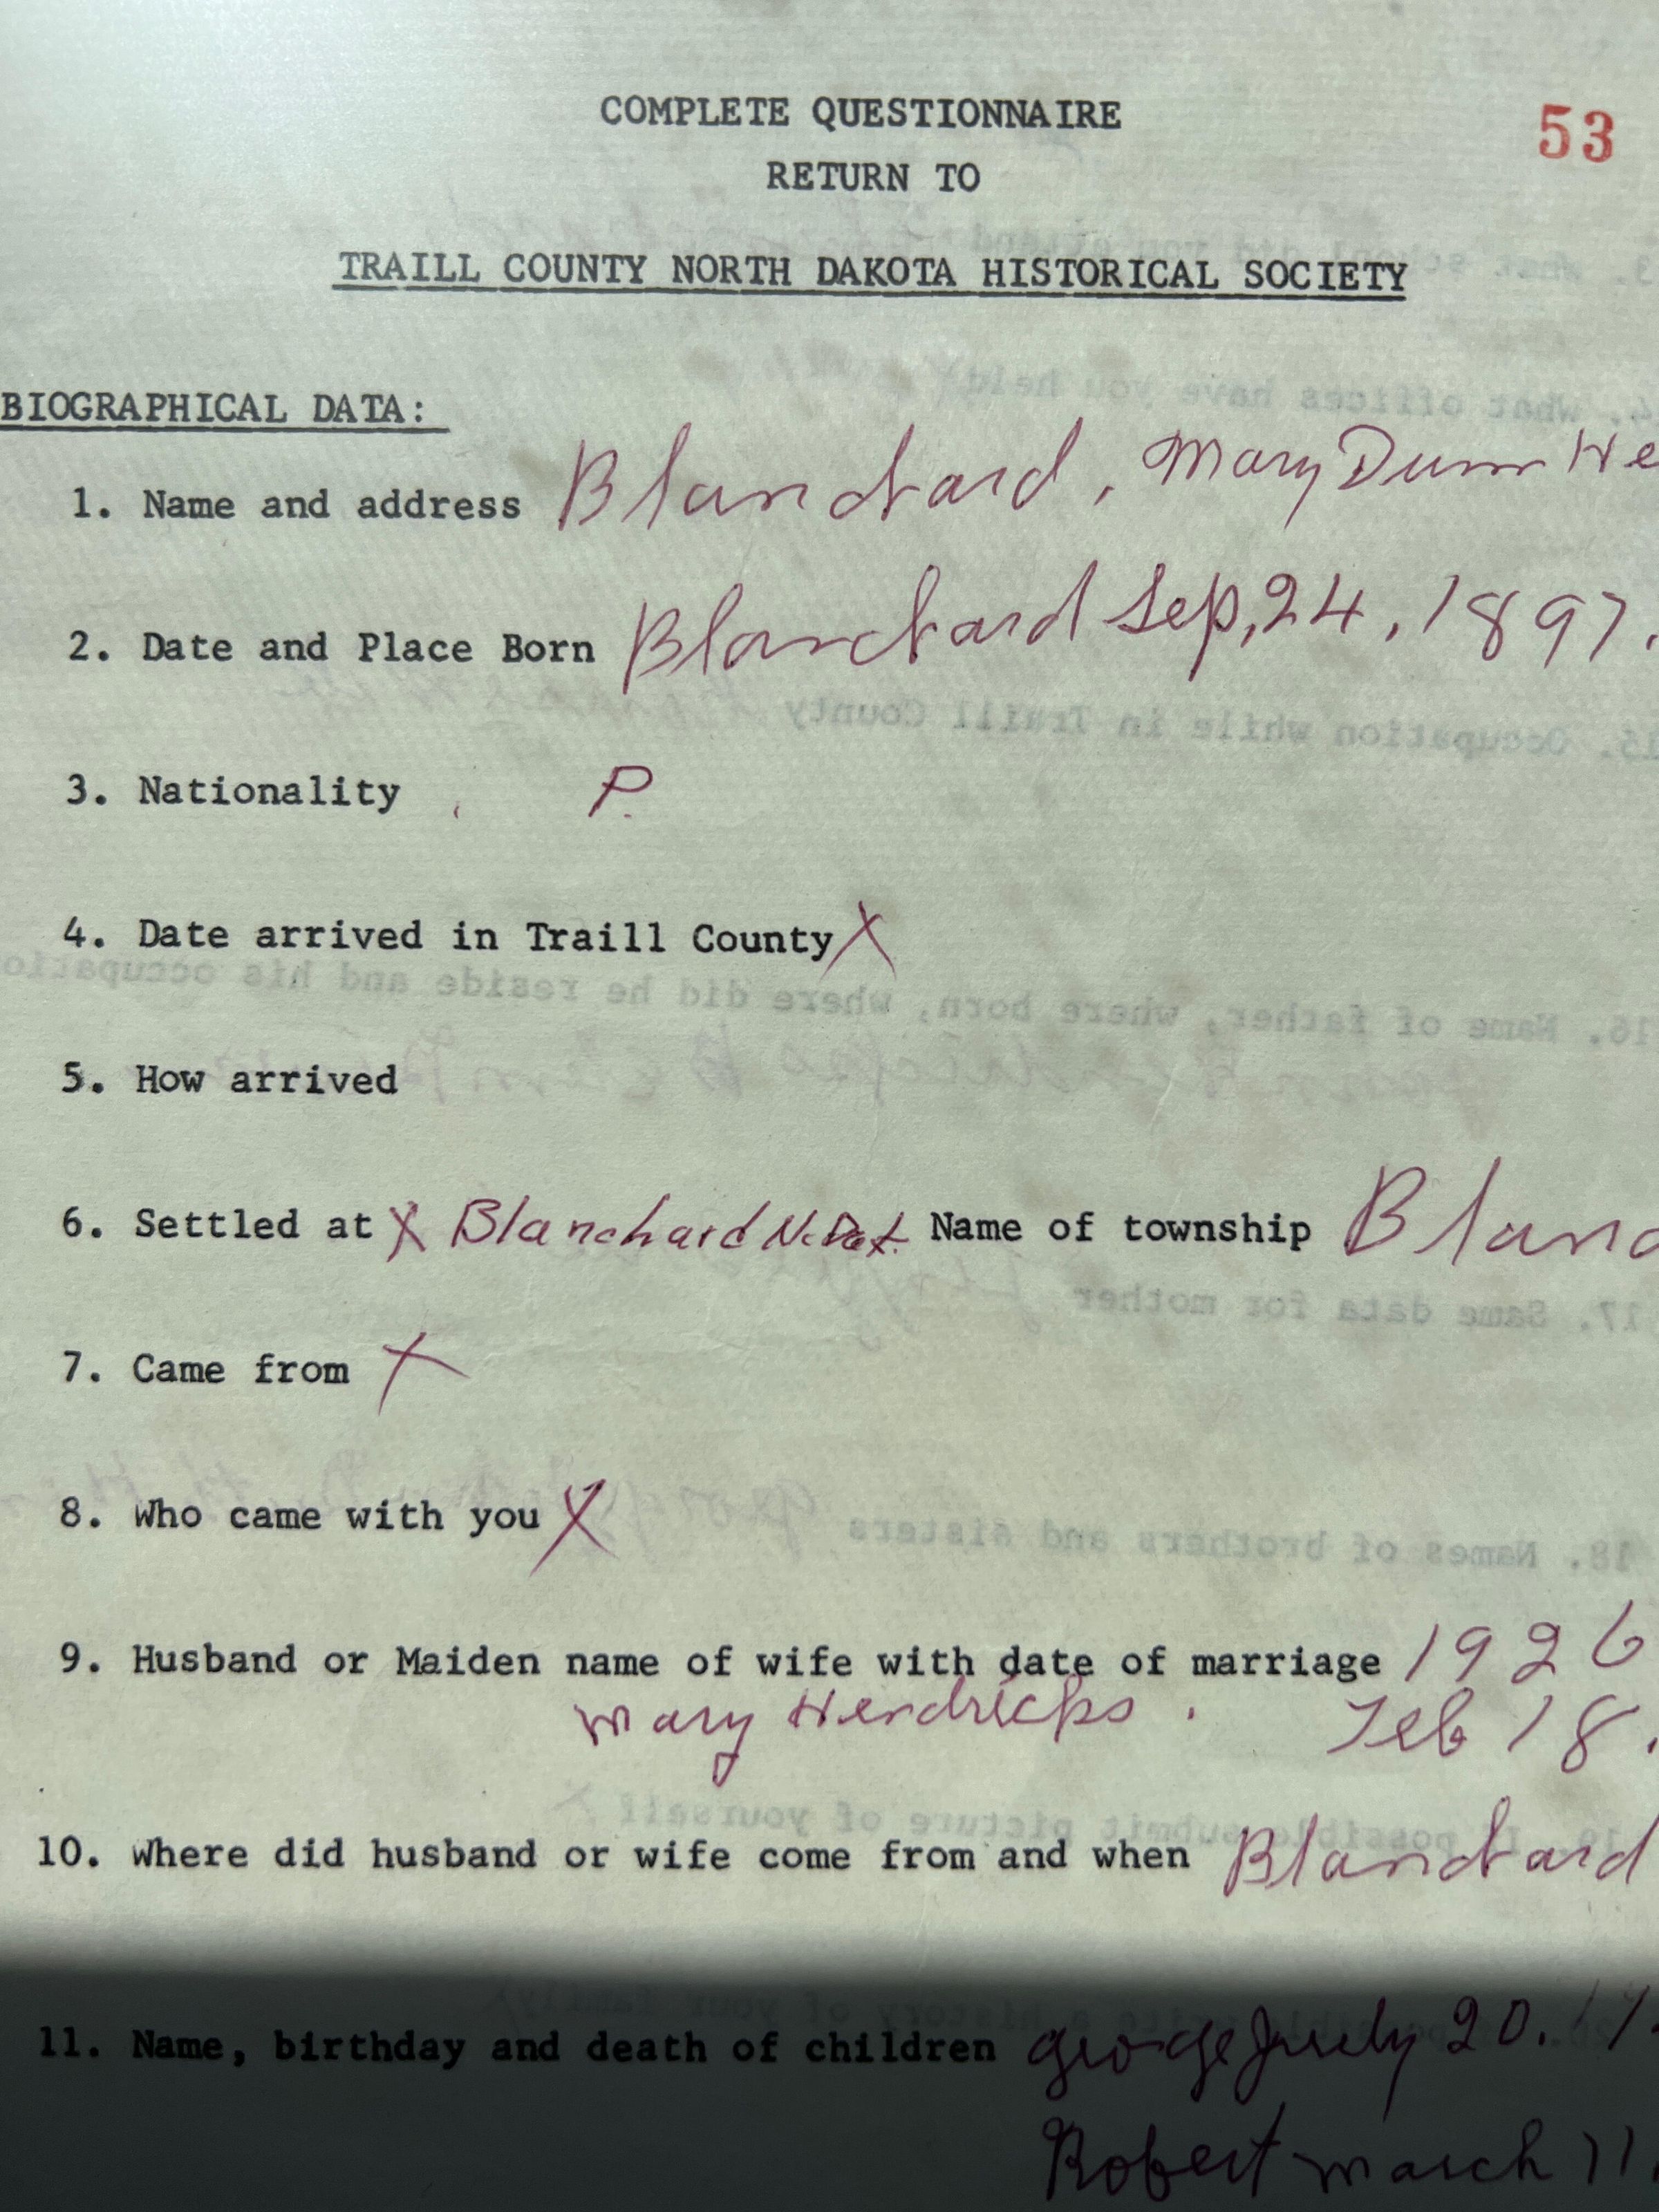 COMPLETE QUESTIONNAIRE
53
RETURN TO
TRAILL COUNTY NORTH DAKOTA HISTORICAL SOCIETY
BIOGRAPHICAL DATA:
1. Name and address Blanchard, Mary Dunn He
2. Date and Place Born Blanchard Sep, 24, 1897.
3. Nationality P.
4. Date arrived in Traill County X
5. How arrived
6. Settled at X Blanchard N. Dak. Name of township Blanc
7. Came from X
8. Who came with you X
9. Husband or Maiden name of wife with date of marriage 1926
Mary Hendricks. Feb 18.
10. Where did husband or wife come from and when Blanchard
11. Name, birthday and death of children George July 20. 19
Robert march 11.